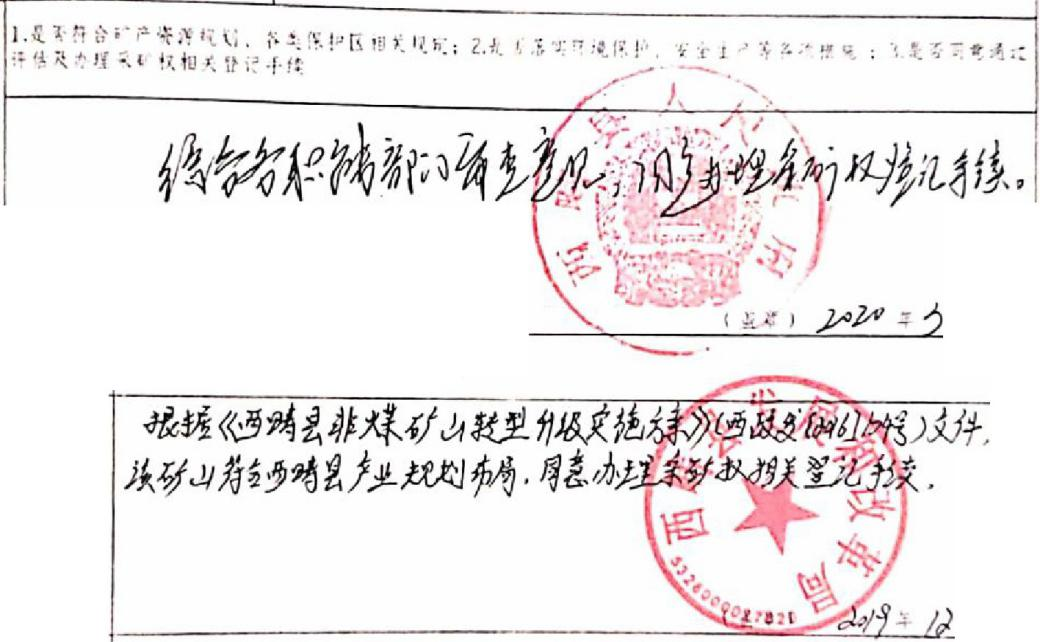 1.是否符合矿产资源规划、各类保护区相关规定；2.是否落实环境保护、安全生产等各项措施；3.是否同意通过
评估及办理采矿权相关登记手续
综合各职能部门审查意见，同意办理采矿权登记手续。
西畴县人民政府
（盖章） 2020年3
根据《西畴县非煤矿山转型升级实施方案》（西政发 号）文件，
该矿山符合西畴县产业规划布局，同意办理采矿权相关登记手续。
西畴县发 和改革局
2019年12